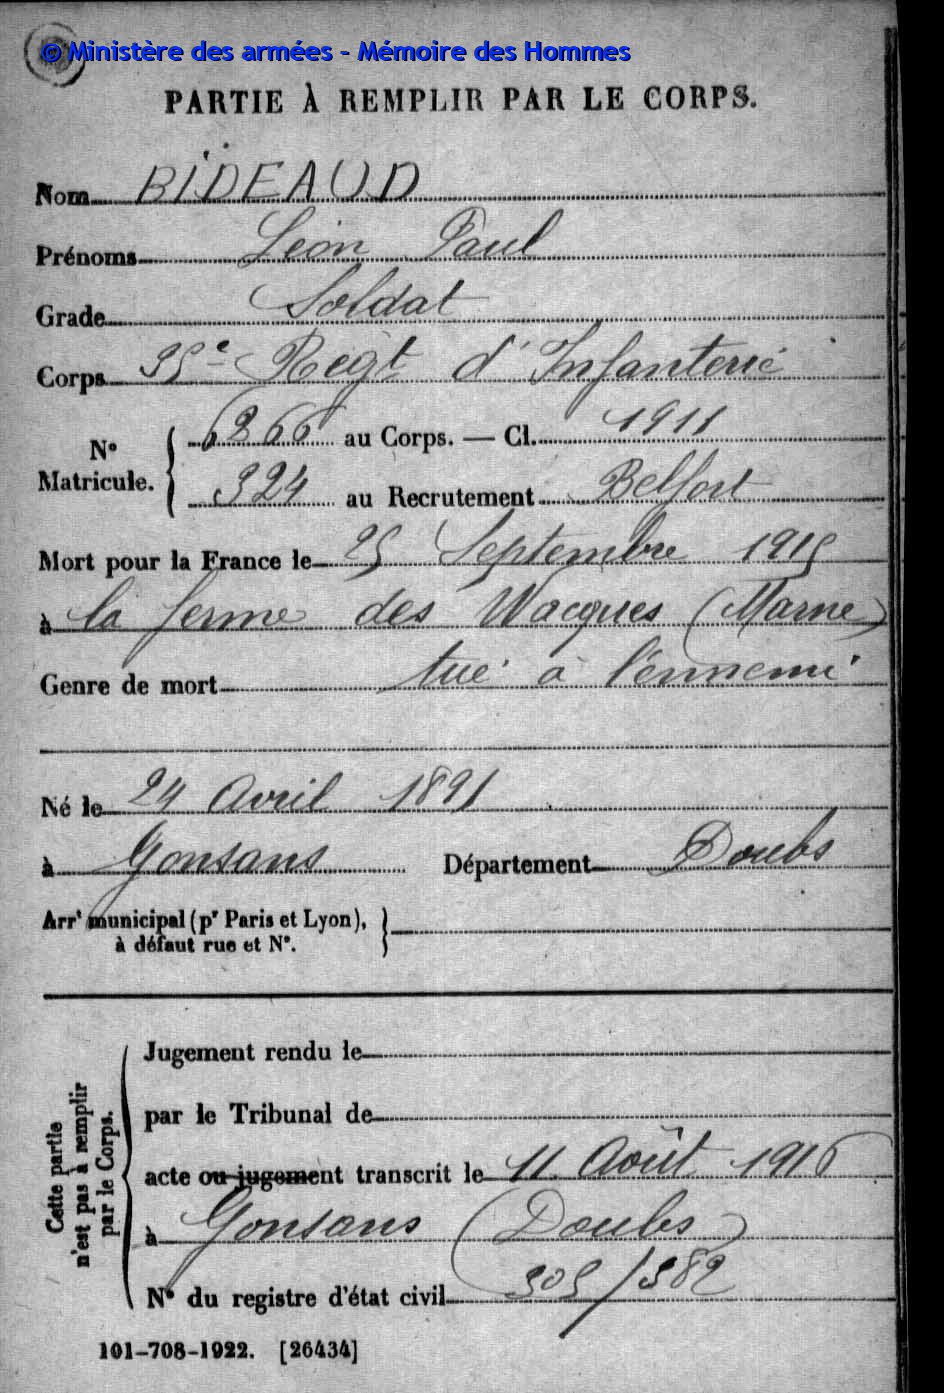 © Ministère des armées - Mémoire des Hommes
PARTIE À REMPLIR PAR LE CORPS.
Nom BIDEAUD
Prénoms Léon Paul
Grade Soldat
Corps 35e Régt d'Infanterie
N° Matricule. 6866 au Corps. — Cl. 1911
324 au Recrutement Belfort
Mort pour la France le 25 Septembre 1915
à la ferme des Wacques (Marne)
Genre de mort tué à l'ennemi
Né le 24 Avril 1891
à Gonsans Département Doubs
Arrt municipal (pr Paris et Lyon),
à défaut rue et N°.
Cette partie
n'est pas à remplir
par le Corps.
Jugement rendu le
par le Tribunal de
acte ou jugement transcrit le 11 Août 1916
à Gonsans (Doubs)
N° du registre d'état civil
101-708-1922. [26434]